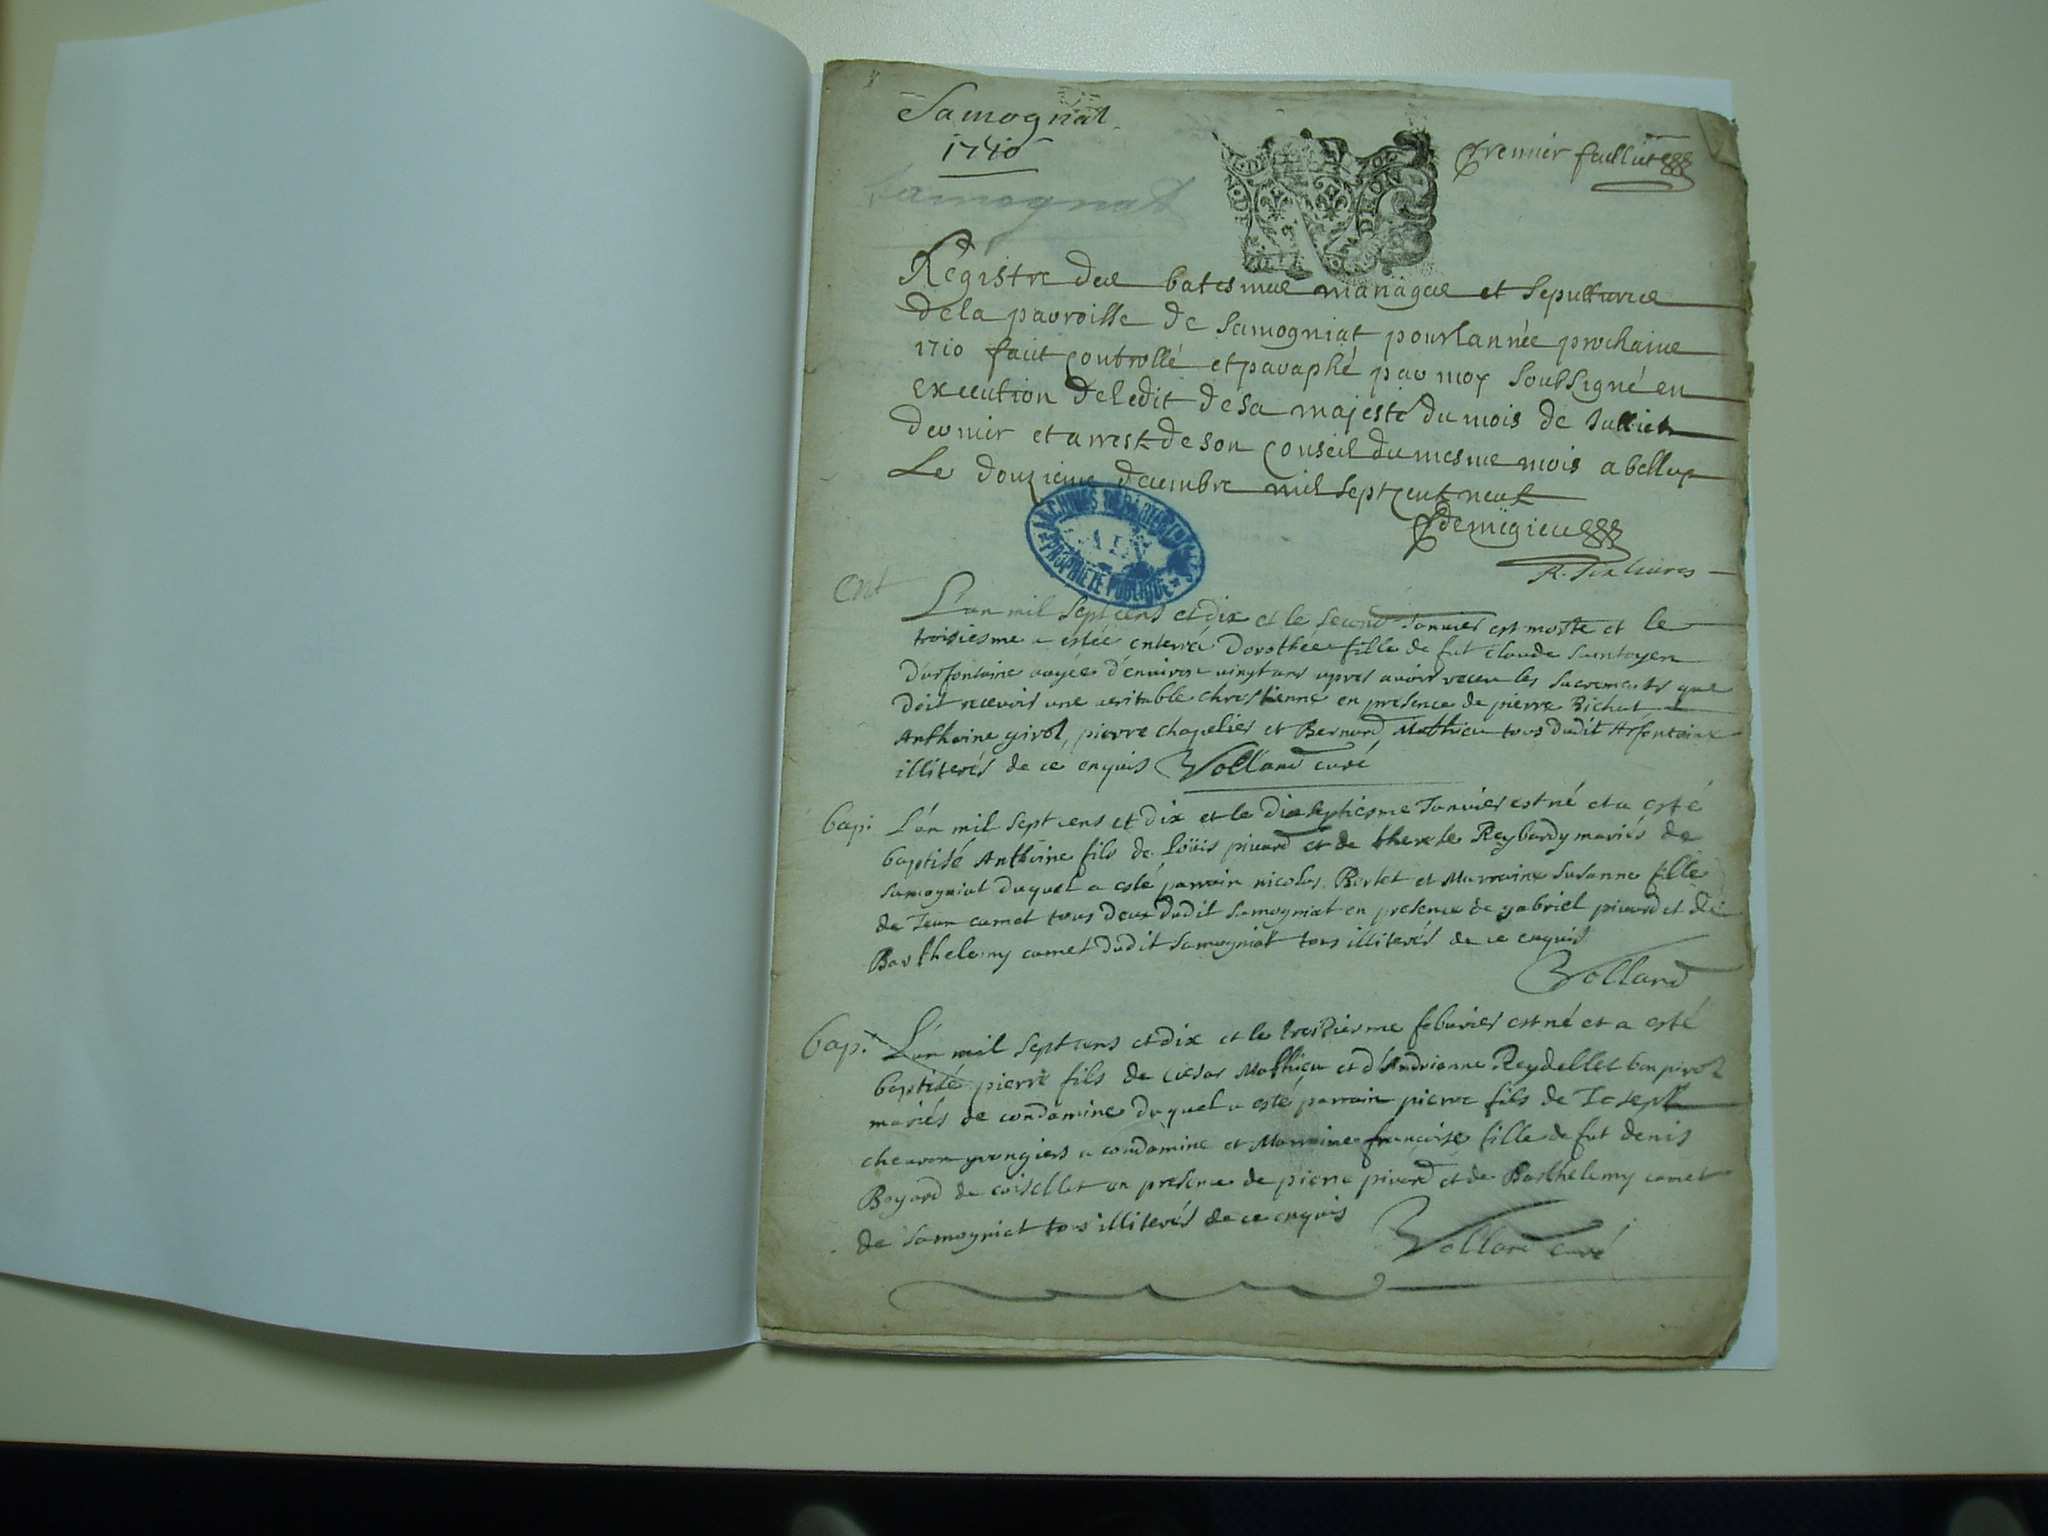 Samognat
1710
Premier feullet
Samognat
Registre des batesmes mariages et sepultures
de la parroisse de Samogniat pour lannée prochaine
1710 fait controllé et paraphé par moy soubsigné en
execution de ledit de sa majesté du mois de Julliet
dernier et arrest de son conseil du mesme mois a belley
Le douzieme decembre mil sept cent neuf
demigieu
R. six livres
ARCHIVES DÉPARTEMENTALES
AIN
PROPRIÉTÉ PUBLIQUE
Ent
L'an mil sept cens et dix et le second Janvier est morte et le
troisiesme a estée enterré Dorothée fille de fut Claude
d'arfontaine aagée d'environ vingt ans apres avoir receu les sacrements que
doit recevoir une veritable chrestienne en presence de pierre Richet
Anthoine girod, pierre chapelier et Bernard Mathieu tous dudit Arfontaine
illiterés de ce enquis Volland curé
bap.
L'an mil sept cens et dix et le dixseptiesme Janvier est né et a esté
baptisé Anthoine fils de Loüis pivard et de therese Reybardy mariés de
Samogniat duquel a esté parrain nicolas Bertet et Marraine Susanne fille
de Jean camet tous deux dudit Samogniat en presence de gabriel pivard et de
Barthelemy camet dudit Samogniat tous illiterés de ce enquis
Volland
bap.
L'an mil sept cens et dix et le tresiesme febvrier est né et a esté
baptisé pierre fils de Cesar Mathieu et d'Andrienne Reydellet
mariés de condamine duquel a esté parrain pierre fils de Joseph
grangier a condamine et Marraine francoise fille de fut denis
Boyard de coisellet en presence de pierre pivard et de Barthelemy camet
de Samogniat tous illiterés de ce enquis
Volland curé